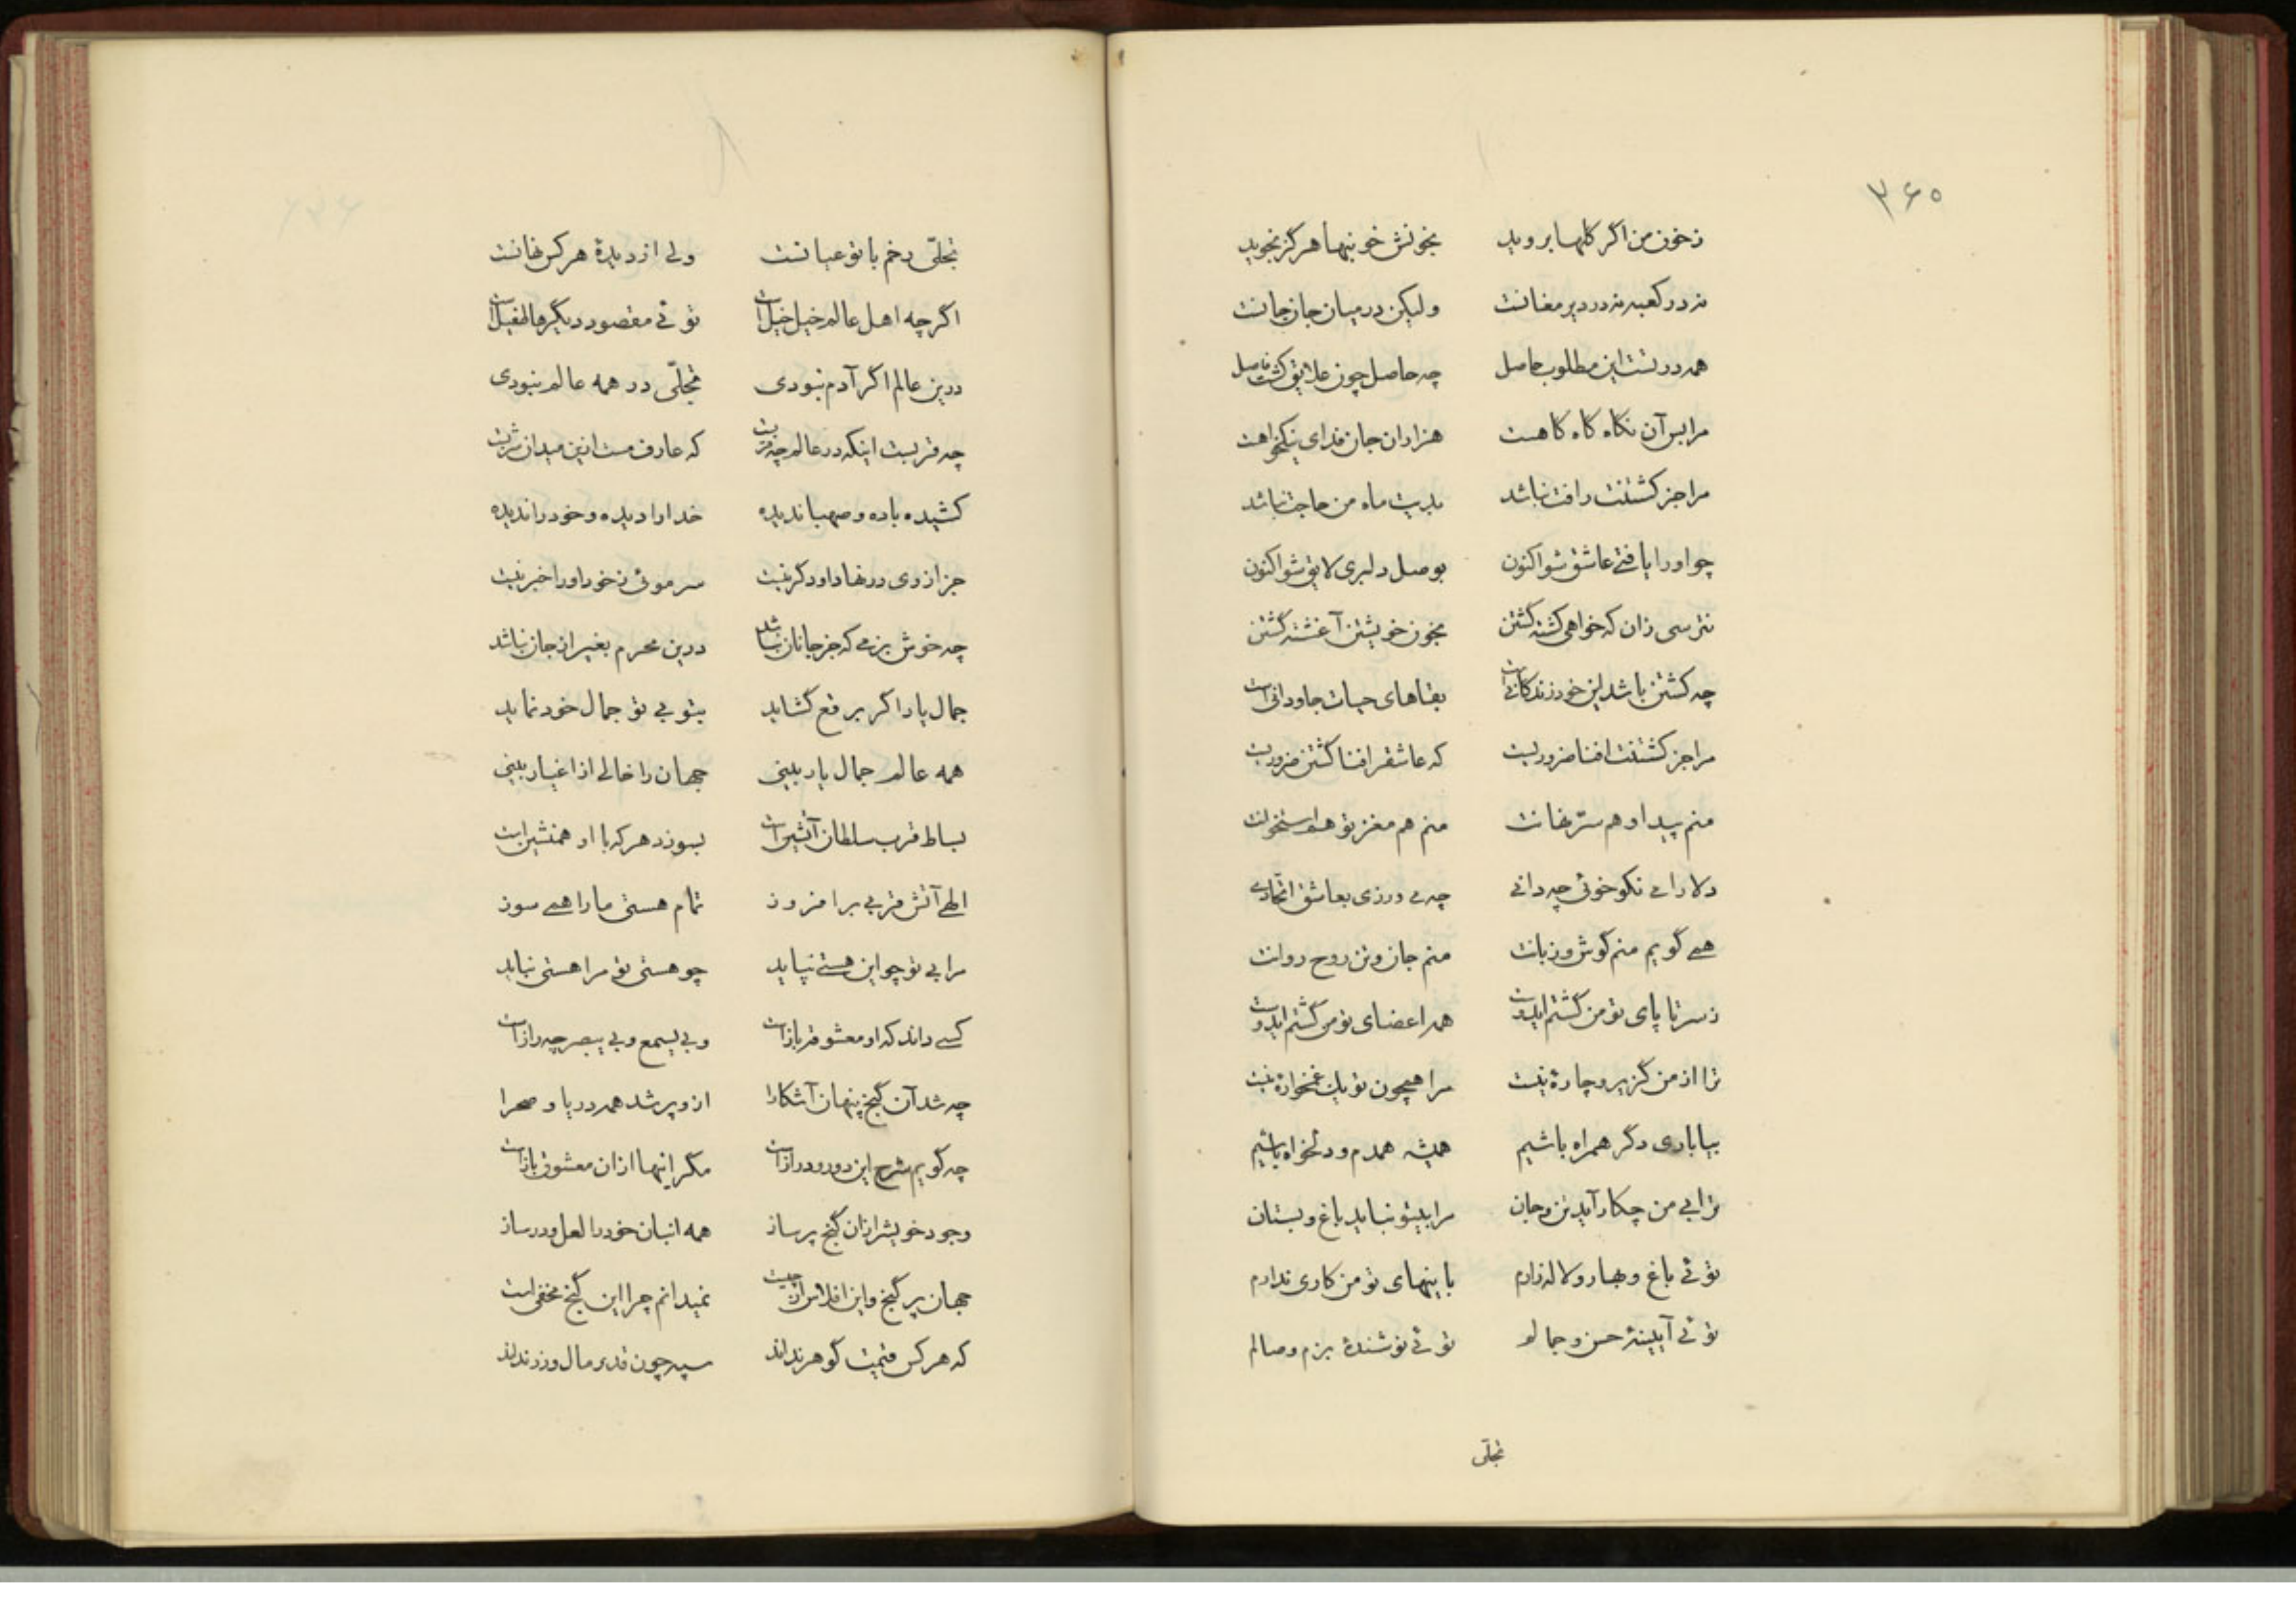 ۳۶۵
ز خون من اگر گلها بروید بخونش خونبها هرگز نجوید
نه در کعبه نه در دیر مغانست ولیکن در میان جان جانست
همه در تست این مطلوب حاصل چه حاصل چون علایق گشت فاصل
مرا بس آن نگاه گاه گاهت هزاران جان فدای نیکخواهت
مرا جز کشتنت رافت نباشد بدیت ماه من حاجت نباشد
چو او را یافتی عاشق شو اکنون بوصل دلبری لایق شو اکنون
نترسی زان که خواهی کشته گشتن بخون خویشتن آغشته گشتن
چه کشتن باشد این خود زندگانی است بقاهای حیات جاودانی است
مرا جز کشتنت افنا ضروریست که عاشق را فنا گشتن ضروریست
منم پیدا و هم سرّ نهانت منم هم مغز تو هم استخوانت
دلارای نکو خوئی چه دانی چه می ورزی بعاشق اتحادی
همی گویم منم گوش و زبانت منم جان و تن روح روانت
ز سر تا پای تو من گشتم ایدوست همه اعضای تو من گشتم ایدوست
ترا از من گزیر و چارهٔ نیست مرا همچون تو یک غمخوارهٔ نیست
بیا باری دگر همراه باشیم همیشه همدم و دلخواه باشیم
ترا بی من چکار آید تن و جان مرا بیتو نباید باغ و بستان
توئی باغ و بهار و لاله زارم باینهای تو من کاری ندارم
توئی آیینهٔ حسن و جمالم توئی نوشندهٔ بزم وصالم
تجلّی
تجلّی رخم با تو عیانست ولی از دیدهٔ هر کس نهانست
اگرچه اهل عالم خیل خیل است توئی مقصود دیگرها طفیل است
درین عالم اگر آدم نبودی تجلّی در همه عالم نبودی
چه قربست اینکه در عالم چه قربست که عارف مست ازین میدان شربست
کشیده باده و صهبا ندیده خدا را دیده و خود را ندیده
جز از وی در نهاد او دگر نیست سر موئی ز خود او را خبر نیست
چه خوش بزمی که جز جانان نباشد درین محرم بغیر از جان نباشد
جمال یار اگر برقع گشاید بتو بی تو جمال خود نماید
همه عالم جمال یار بینی جهان را خالی از اغیار بینی
بساط قرب سلطان آتشین است بسوزد هر که با او همنشین است
الهی آتش قربی برافروز تمام هستی ما را همی سوز
مرا بی تو چو این هستی نپاید چو هستی تو مرا هستی نباید
کسی داند که او معشوقه باز است و بی یسمع و بی یبصر چه راز است
چه شد آن گنج پنهان آشکارا ازو پر شد همه دریا و صحرا
چه گویم شرح این دور و دراز است مگر اینها از آن معشوق باز است
وجود خویش را زان گنج پر ساز همه انبان خود را لعل و در ساز
جهان پر گنج و این افلاس از چیست نمیدانم چرا این گنج مخفی است
که هر کس قیمت گوهر نداند سپه چون قدر مال و زر نداند